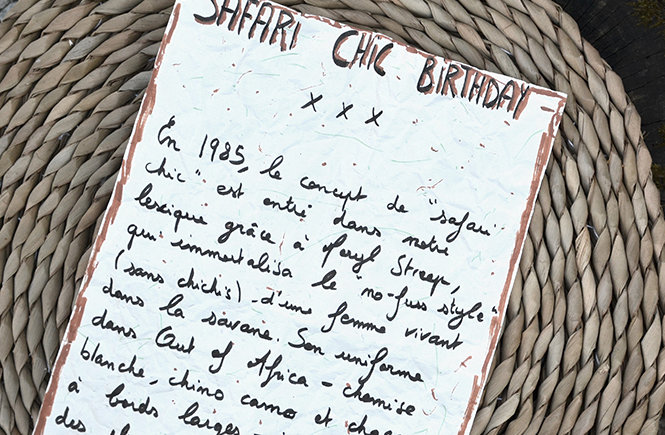 SAFARI CHIC BIRTHDAY
x x x
En 1985, le concept de "safari
chic" est entré dans notre
lexique grâce à Meryl Streep,
qui immortalisa le "no-fuss style"
(sans chichis) - d'une femme vivant
dans la savane. Son uniforme
dans Out of Africa - chemise
blanche, chino camo et
à bords larges
des